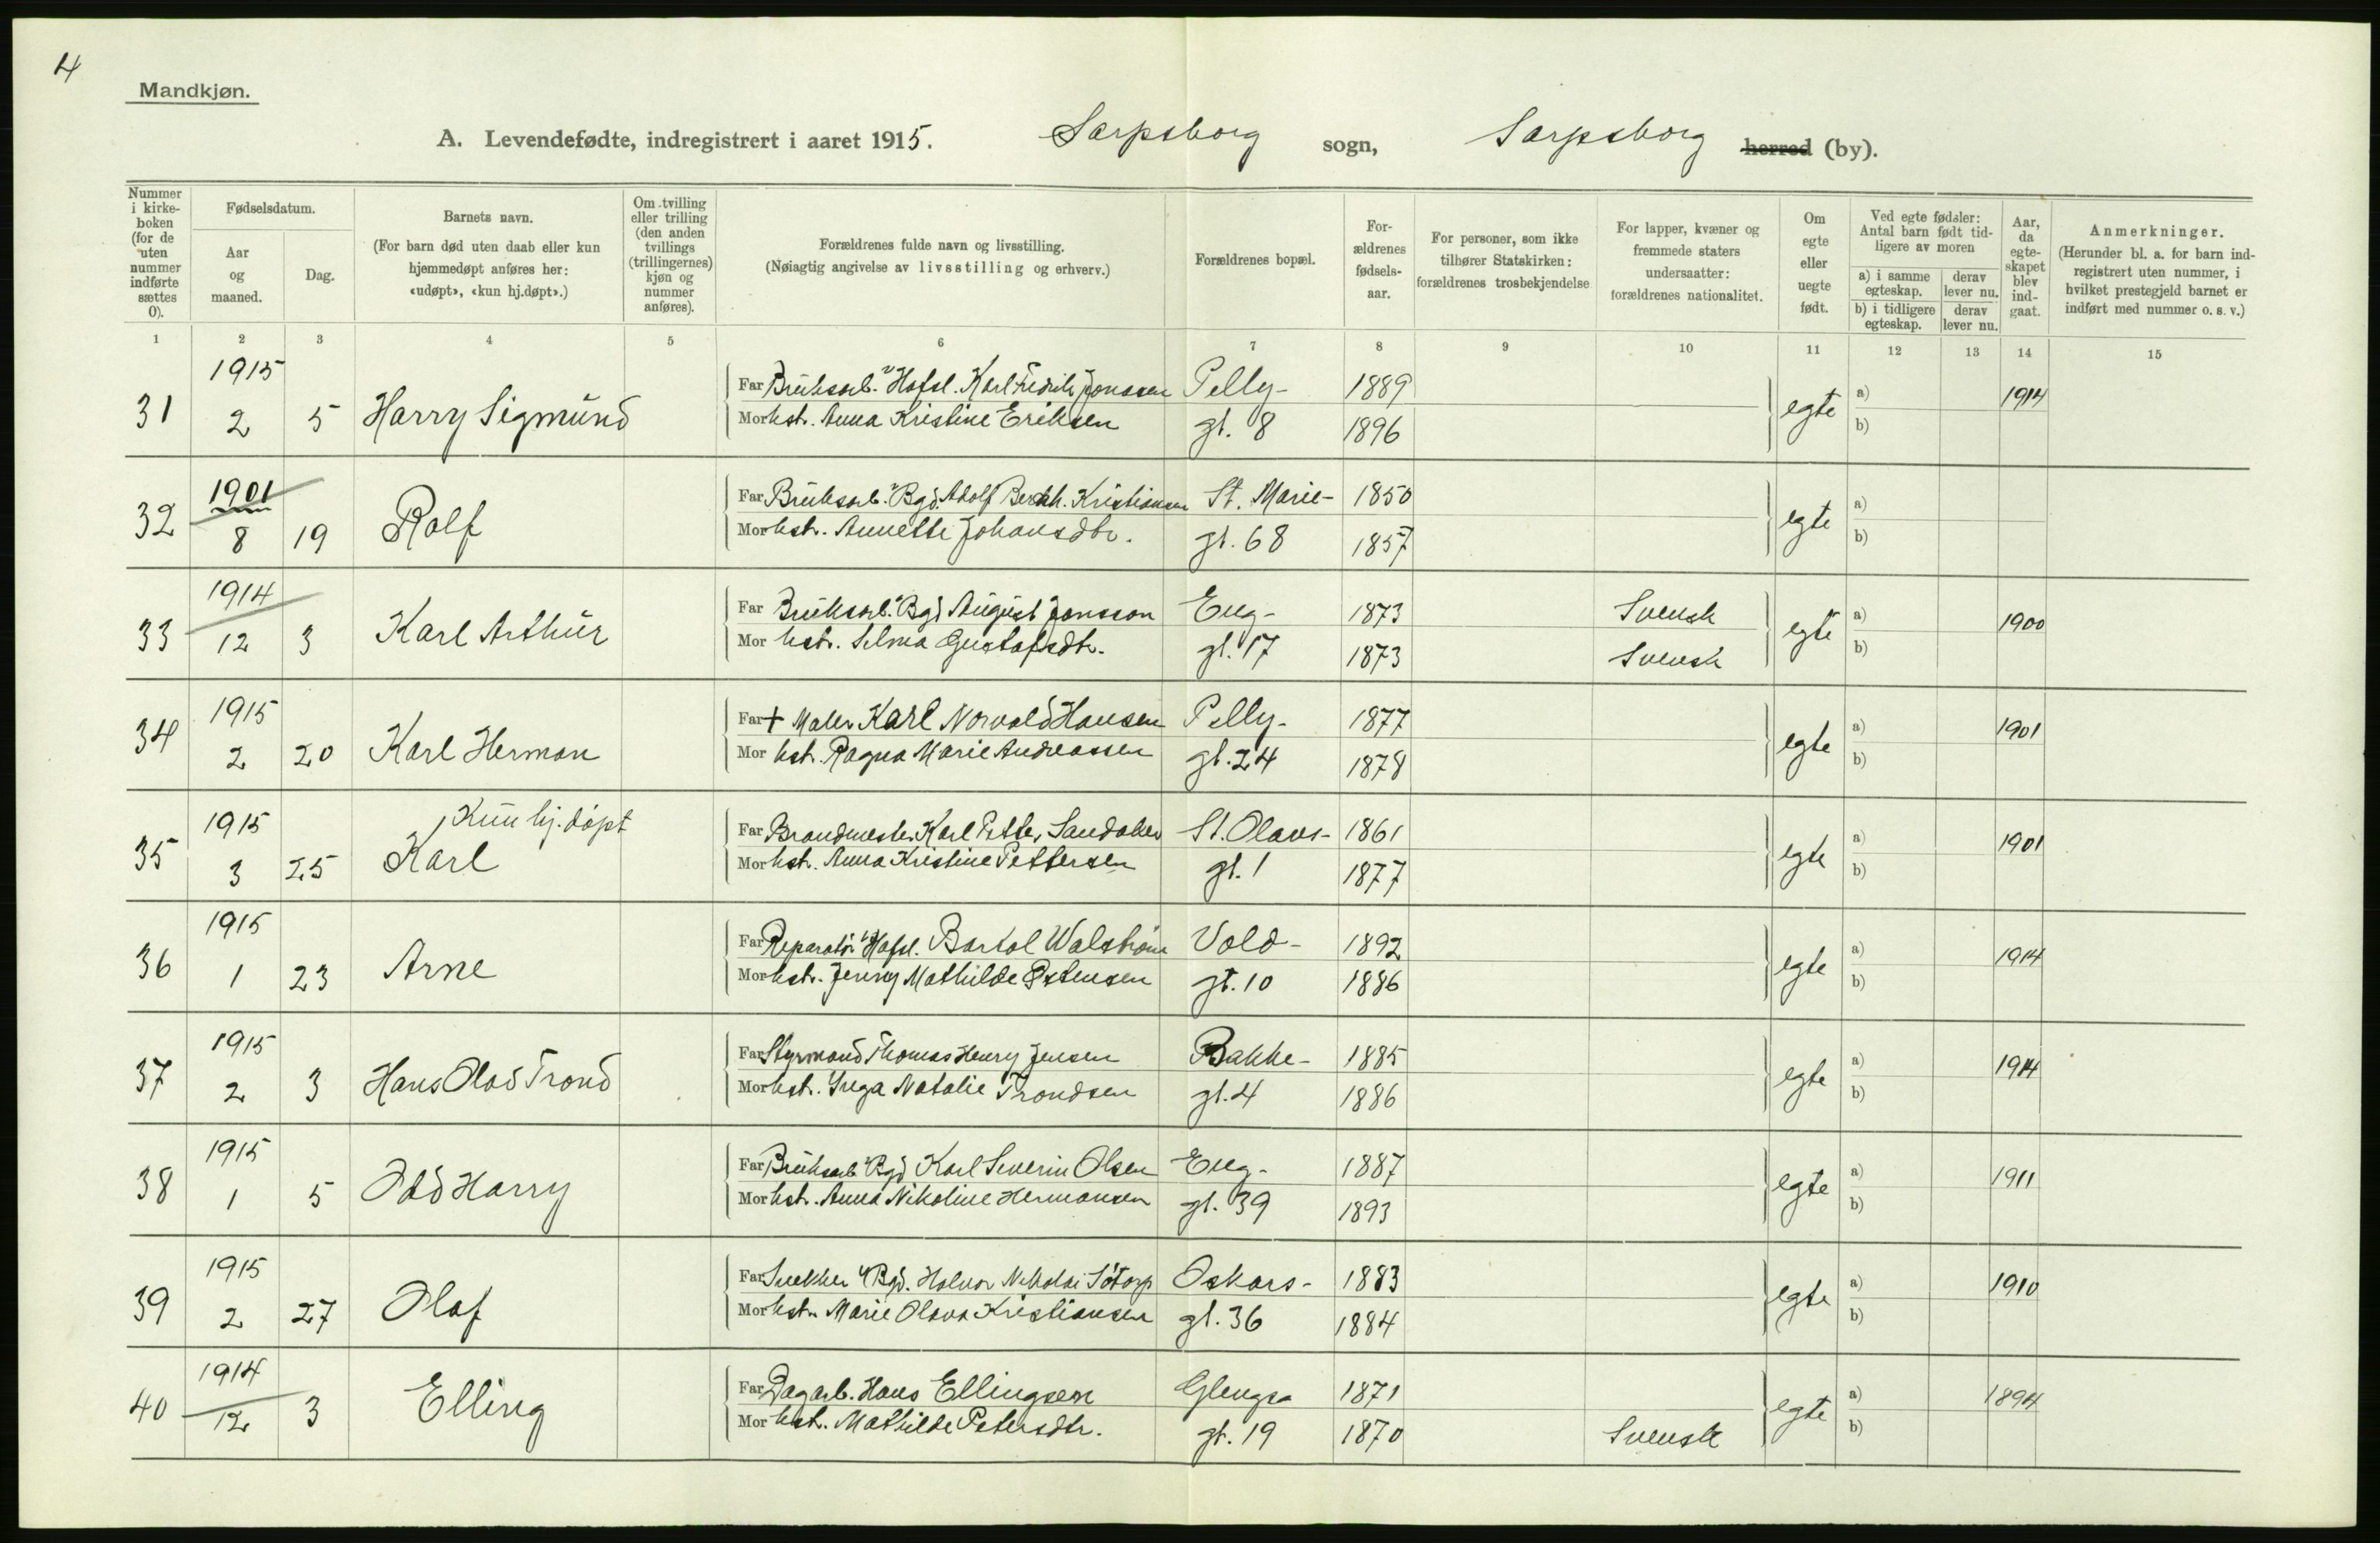 4
Mandkjøn.
A. Levendefødte, indregistrert i aaret 1915. Sarpsborg sogn, Sarpsborg herred (by).
Nummer i kirke-boken (for de uten nummer indførte sættes 0).
Fødselsdatum.
Aar og maaned.
Dag.
Barnets navn.
(For barn død uten daab eller kun hjemmedøpt anføres her: «udøpt», «kun hj.døpt».)
Om tvilling eller trilling (den anden tvillings (trillingernes) kjøn og nummer anføres).
Forældrenes fulde navn og livsstilling.
(Nøiagtig angivelse av livsstilling og erhverv.)
Forældrenes bopæl.
For-ældrenes fødsels-aar.
For personer, som ikke tilhører Statskirken: forældrenes trosbekjendelse
For lapper, kvæner og fremmede staters undersaatter: forældrenes nationalitet.
Om egte eller uegte født.
Ved egte fødsler: Antal barn født tid-ligere av moren
a) i samme egteskap.
derav lever nu.
b) i tidligere egteskap.
derav lever nu.
Aar, da egte-skapet blev ind-gaat.
Anmerkninger.
(Herunder bl. a. for barn ind-registrert uten nummer, i hvilket prestegjeld barnet er indført med nummer o. s. v.)
1 2 3 4 5 6 7 8 9 10 11 12 13 14 15
1915
31 2 5 Harry Sigmund
Far Bruksarb. v Hafsl. Karl Fredrik Jonssen Pelly- 1889
Mor hst. Anna Kristine Eriksen gt. 8 1896
egte a) b) 1914
1901
32 8 19 Rolf
Far Bruksarb. v Bgd. Adolf Kristiansen St. Marie- 1850
Mor hst. Annette Johansdtr. gt. 68 1857
egte a) b)
1914
33 12 3 Karl Arthur
Far Bruksarb. v Bgd August Jonsson Eng- 1873 Svensk
Mor hst. Selma Gustafsdtr. gt. 17 1873 Svensk
egte a) b) 1900
1915
34 2 20 Karl Herman
Far + Maler Karl Norvald Hansen Pelly- 1877
Mor hst. Ragna Marie Andreassen gt. 24 1878
egte a) b) 1901
1915 Kun hj. døpt
35 3 25 Karl
Far Brandmester Karl Petter Sandaker St. Olavs- 1861
Mor hst. Anna Kristine Pettersen gt. 1 1877
egte a) b) 1901
1915
36 1 23 Arne
Far Reparatør v Hafsl. Bartol Walstrøm Vold- 1892
Mor hst. Jenny Mathilde Østensen gt. 10 1886
egte a) b) 1914
1915
37 2 3 Hans Olav Trond
Far Styrmand Thomas Henry Jensen Bakke- 1885
Mor hst. Inga Natalie Trondsen gt. 4 1886
egte a) b) 1914
1915
38 1 5 Odd Harry
Far Bruksarb v Bgd Karl Severin Olsen Eng- 1887
Mor hst. Anna Nikoline Hermansen gt. 39 1893
egte a) b) 1911
1915
39 2 27 Olaf
Far Snekker v Bgd. Halvor Nikolai Søtorp Oskars- 1883
Mor hst. Marie Olava Kristiansen gt. 36 1884
egte a) b) 1910
1914
40 12 3 Elling
Far Dagarb. Hans Ellingsen Glengs 1871
Mor hst. Mathilde Petersdtr. gt. 19 1870 Svensk
egte a) b) 1894